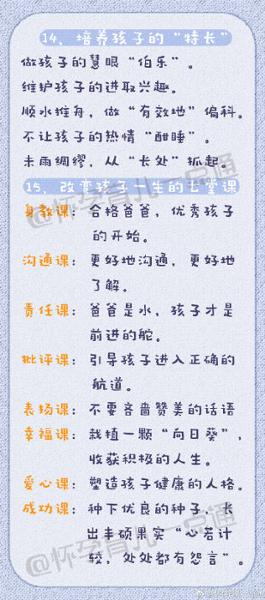 14、培养孩子的“特长”
做孩子的慧眼“伯乐”。
维护孩子的进取兴趣。
顺水推舟,做“有效地”偏科。
不让孩子的热情“酣睡”。
未雨绸缪,从“长处”抓起。
15、改变孩子一生的七堂课
身教课:合格爸爸,优秀孩子
的开始。
沟通课:更好地沟通,更好地
了解。
责任课:爸爸是水,孩子才是
前进的舵。
批评课:引导孩子进入正确的
航道。
表扬课:不要吝啬赞美的话语
幸福课:栽植一颗“向日葵”,
收获积极的人生。
爱心课:塑造孩子健康的人格。
成功课:种下优良的种子,长
出丰硕果实“心若计
较,处处都有怨言”。
@怀孕育儿一点通
@怀孕育儿一点通